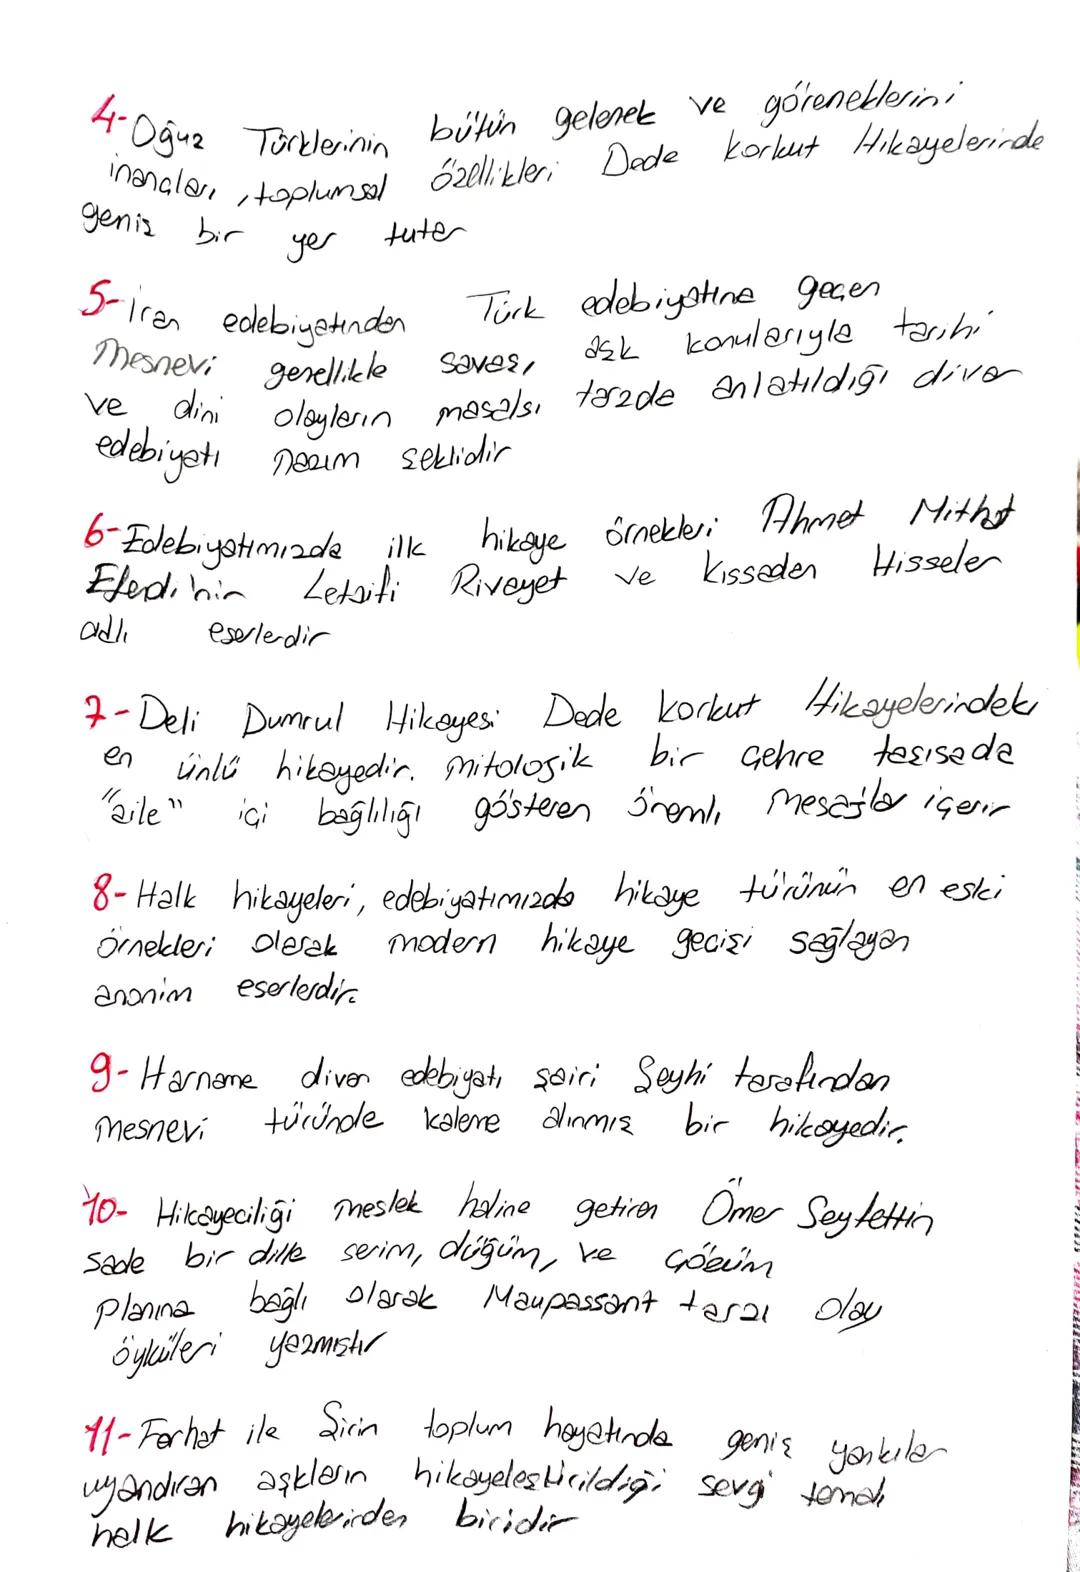 4- Oğuz Türklerinin bütün gelenek ve göreneklerini
inançları, toplumsal özellikleri Dede Korkut Hikayelerinde
geniş bir yer tutar
5- İran edebiyatından Türk edebiyatına geçen
Mesnevi genellikle savaş, aşk konularıyla tarihi
ve dini olayların masalsı tarzda anlatıldığı divan
edebiyatı nazım şeklidir
6- Edebiyatımızda ilk hikaye örnekleri Ahmet Mithat
Efendi'nin Letaifi Rivayet ve Kıssadan Hisseler
adlı eserlerdir
7- Deli Dumrul Hikayesi Dede Korkut Hikayelerindeki
en ünlü hikayedir. Mitolojik bir çehre taşısada
"aile" içi bağlılığı gösteren önemli mesajlar içerir
8- Halk hikayeleri, edebiyatımızda hikaye türünün en eski
örnekleri olarak modern hikaye geçişi sağlayan
anonim eserlerdir.
9- Harname divan edebiyatı şairi Şeyhi tarafından
mesnevi türünde kaleme alınmış bir hikayedir.
10- Hikayeciliği meslek haline getiren Ömer Seyfettin
sade bir dille serim, düğüm, ve çözüm
planına bağlı olarak Maupassant tarzı olay
öyküleri yazmıştır
11- Ferhat ile Şirin toplum hayatında geniş yankılar
uyandıran aşkların hikayeleştirildiği sevgi temalı
halk hikayelerinden biridir